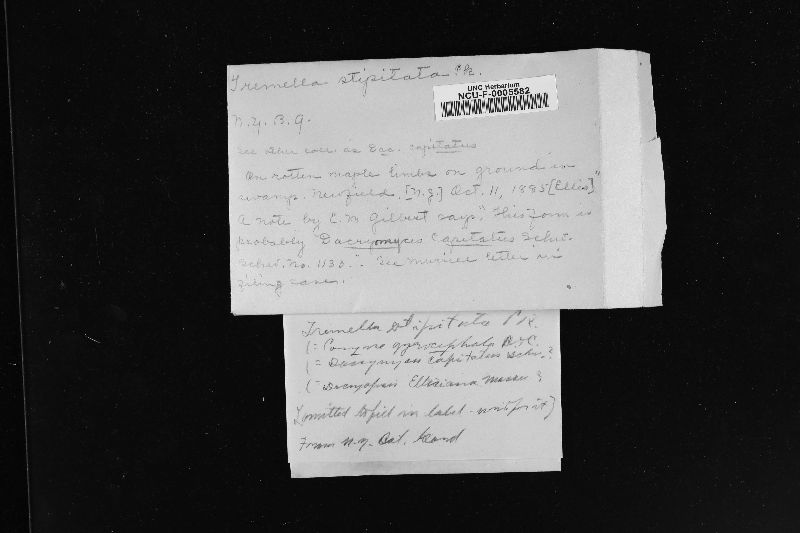 Tremella stipitata Pk.
UNC Herbarium
NCU-F-0005582
N.Y. B. G.
See also coll. as Dac. capitatus
"On rotten maple limbs on ground in
swamp. Newfield, [N.J.] Oct. 11, 1885 [Ellis]"
A note by E. M. Gilbert says, "This form is
probably Dacryomyces Capitatus Schw.
Schw. No. 1135." See letter in
filing case.
Tremella stipitata Pk.
(= Coryne gyrocephala B.&C.
(= Dacrymyces capitatus Schw.?
(= Dacryopsis Ellisiana Massee ?
[omitted to fill in label - ]
From N.Y. Bot. Gard